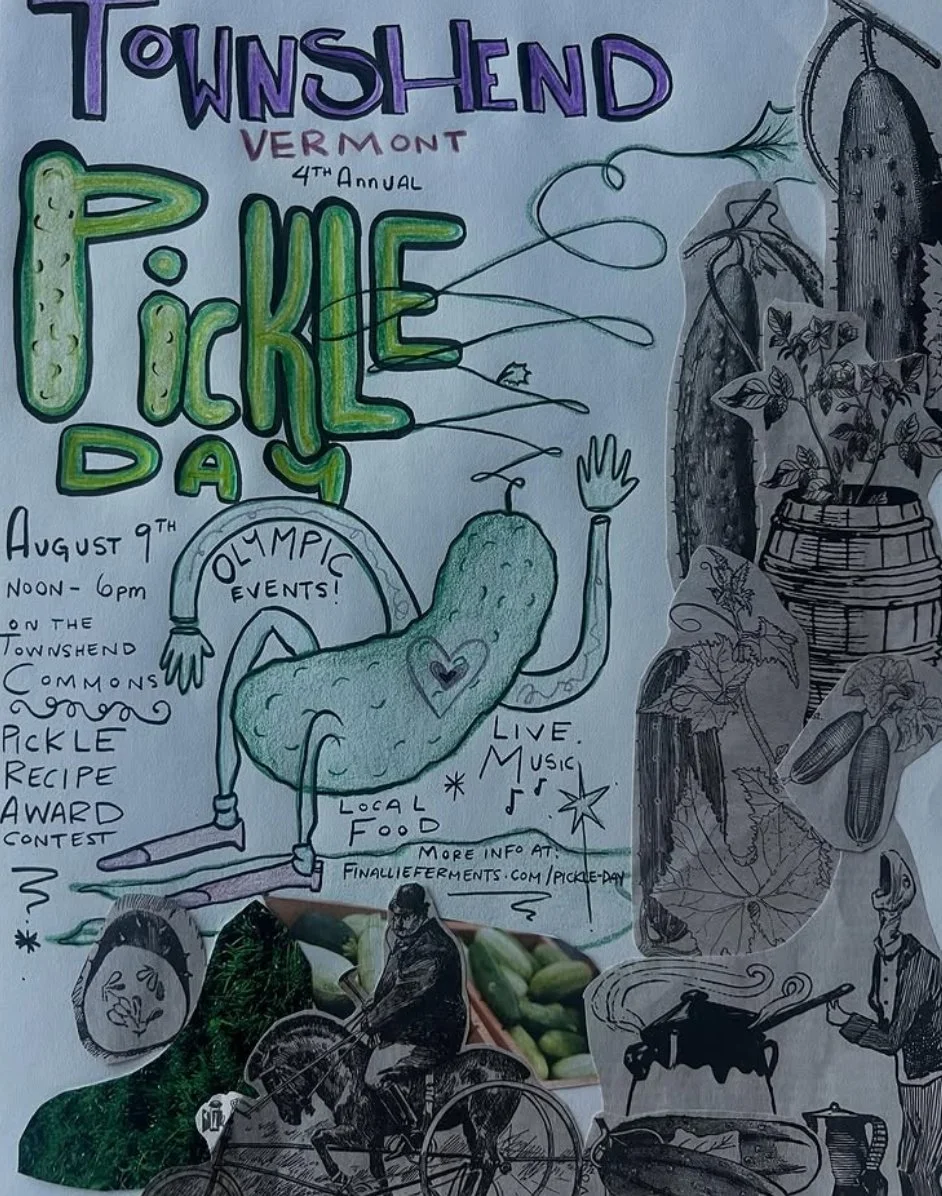 TOWNSHEND
VERMONT
4TH ANNUAL
PICKLE
DAY
AUGUST 9TH
NOON - 6pm
ON THE
TOWNSHEND
COMMONS
PICKLE
RECIPE
AWARD
CONTEST
OLYMPIC
EVENTS!
LIVE
MUSIC
LOCAL
FOOD
MORE INFO AT:
FINALLIEFERMENTS.COM/PICKLE-DAY